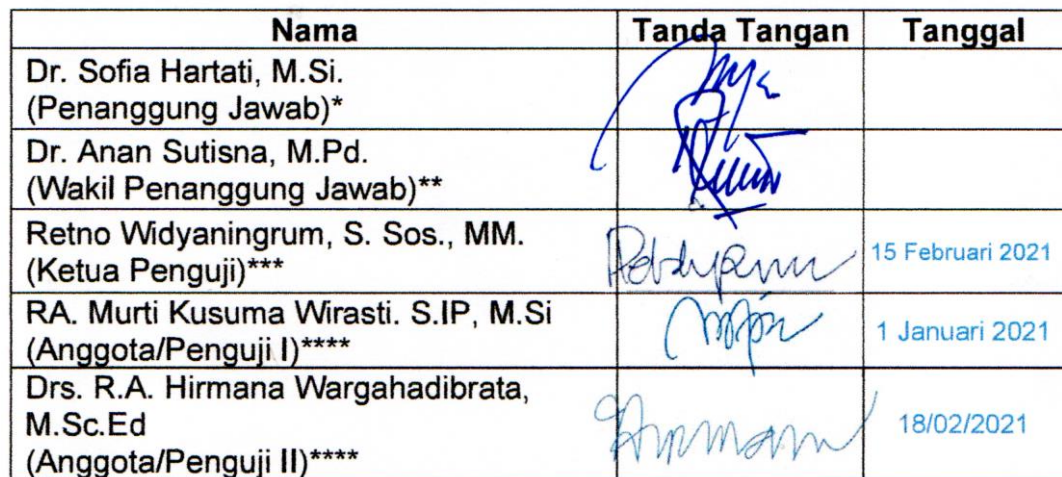 Nama Tanda Tangan Tanggal
Dr. Sofia Hartati, M.Si.
(Penanggung Jawab)*
Dr. Anan Sutisna, M.Pd.
(Wakil Penanggung Jawab)**
Retno Widyaningrum, S. Sos., MM.
(Ketua Penguji)***
15 Februari 2021
RA. Murti Kusuma Wirasti. S.IP, M.Si
(Anggota/Penguji I)****
1 Januari 2021
Drs. R.A. Hirmana Wargahadibrata,
M.Sc.Ed
(Anggota/Penguji II)****
18/02/2021